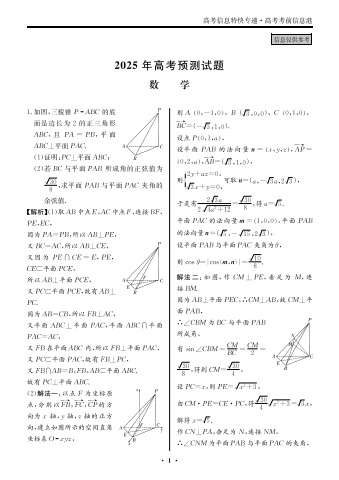 高考信息特快专递·高考考前信息港
信息仅供参考
2025 年高考预测试题
数 学
1. 如图,三棱锥 P-ABC 的底
面是边长为 2 的正三角形
ABC, 且 PA = PB, 平面
ABC⊥平面 PAC.
(1)证明:PC⊥平面 ABC;
(2)若 BC 与平面 PAB 所成角的正弦值为
√30/8,求平面 PAB 与平面 PAC 夹角的
余弦值.
【解析】(1)取 AB 中点 E,AC 中点 F,连接 BF,
PE,EC,
因为 PA=PB,所以 AB⊥PE,
又 BC=AC,所以 AB⊥CE,
又因为 PE∩CE = E, PE,
CE⊂平面 PCE,
所以 AB⊥平面 PCE,
又 PC⊂平面 PCE,故有 AB⊥
PC.
因为 AB=CB,所以 FB⊥AC,
又平面 ABC⊥平面 PAC,平面 ABC∩平面
PAC=AC,
又 FB 在平面 ABC 内,所以 FB⊥平面 PAC,
又 PC⊂平面 PAC,故有 FB⊥PC,
又 FB∩AB=B,FB,AB⊂平面 ABC,
故有 PC⊥平面 ABC.
(2)解法一:以点 F 为坐标原
点,分别以 FB,FC,CP 的方
向为 x 轴,y 轴,z 轴的正方
向,建立如图所示的空间直角
坐标系 O-xyz;
则 A (0,-1,0), B (√3,0,0), C (0,1,0),
BC=(-√3,1,0).
设点 P(0,1,a),
设平面 PAB 的法向量 n = (x,y,z), AP=
(0,2,a),AB=(√3,1,0),
则{2y+az=0, √3x+y=0, 可取 n=(a,-√3a,2√3),
于是有 2√3a/2√4a²+12=√30/8,得 a=√5.
平面 PAC 的法向量 m=(1,0,0),平面 PAB
的法向量 n=(√5,-√15,2√3),
设平面 PAB 与平面 PAC 夹角为 θ,
则 cos θ=|cos⟨m,n⟩|=√10/8.
解法二:如图,作 CM⊥PE,垂足为 M,连
接 BM.
因为 AB⊥平面 PEC,∴CM⊥AB,故 CM⊥平
面 PAB,
∴∠CBM 为 BC 与平面 PAB
所成角,
有 sin∠CBM=CM/BC=CM/2=
√30/8,得到 CM=√30/4,
设 PC=x,则 PE=√x²+3,
由 CM·PE=CE·PC,得 √30/4·√x²+3=√3x,
解得 x=√5.
作 CN⊥PA,垂足为 N,连接 NM,
∴∠CNM 为平面 PAB 与平面 PAC 的夹角,
· 1 ·